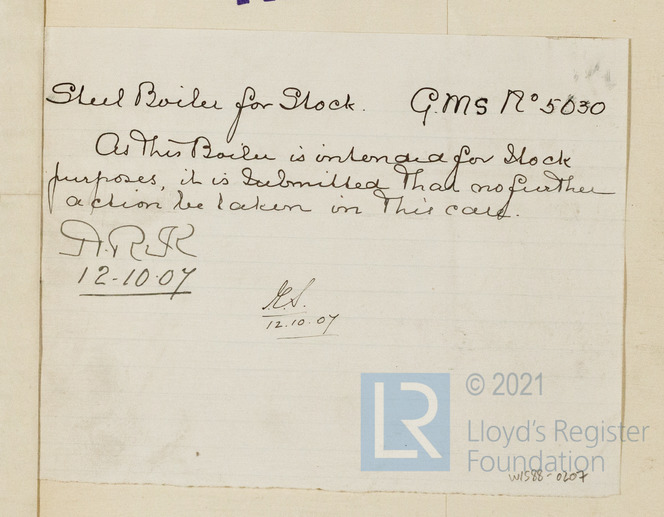 Steel Boiler for Stock. G.MS No 5030
As this Boiler is intended for Stock
purposes, it is submitted that no further
action be taken in this case.
A.R.K
12-10-07
12.10.07
LR © 2021
Lloyd's Register
Foundation
W1588-0207